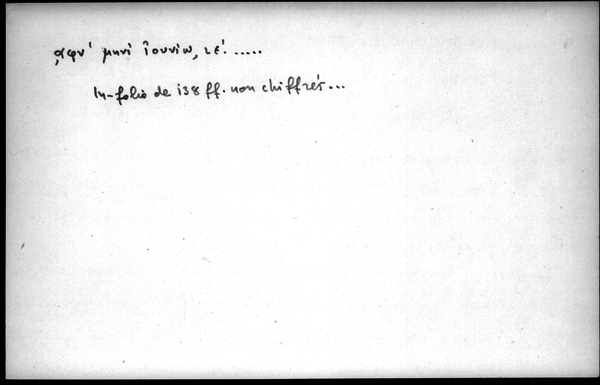 ͵αφν' μηνὶ ἰουνίω, ιε'.....
In-folio de 138 ff. non chiffrés...